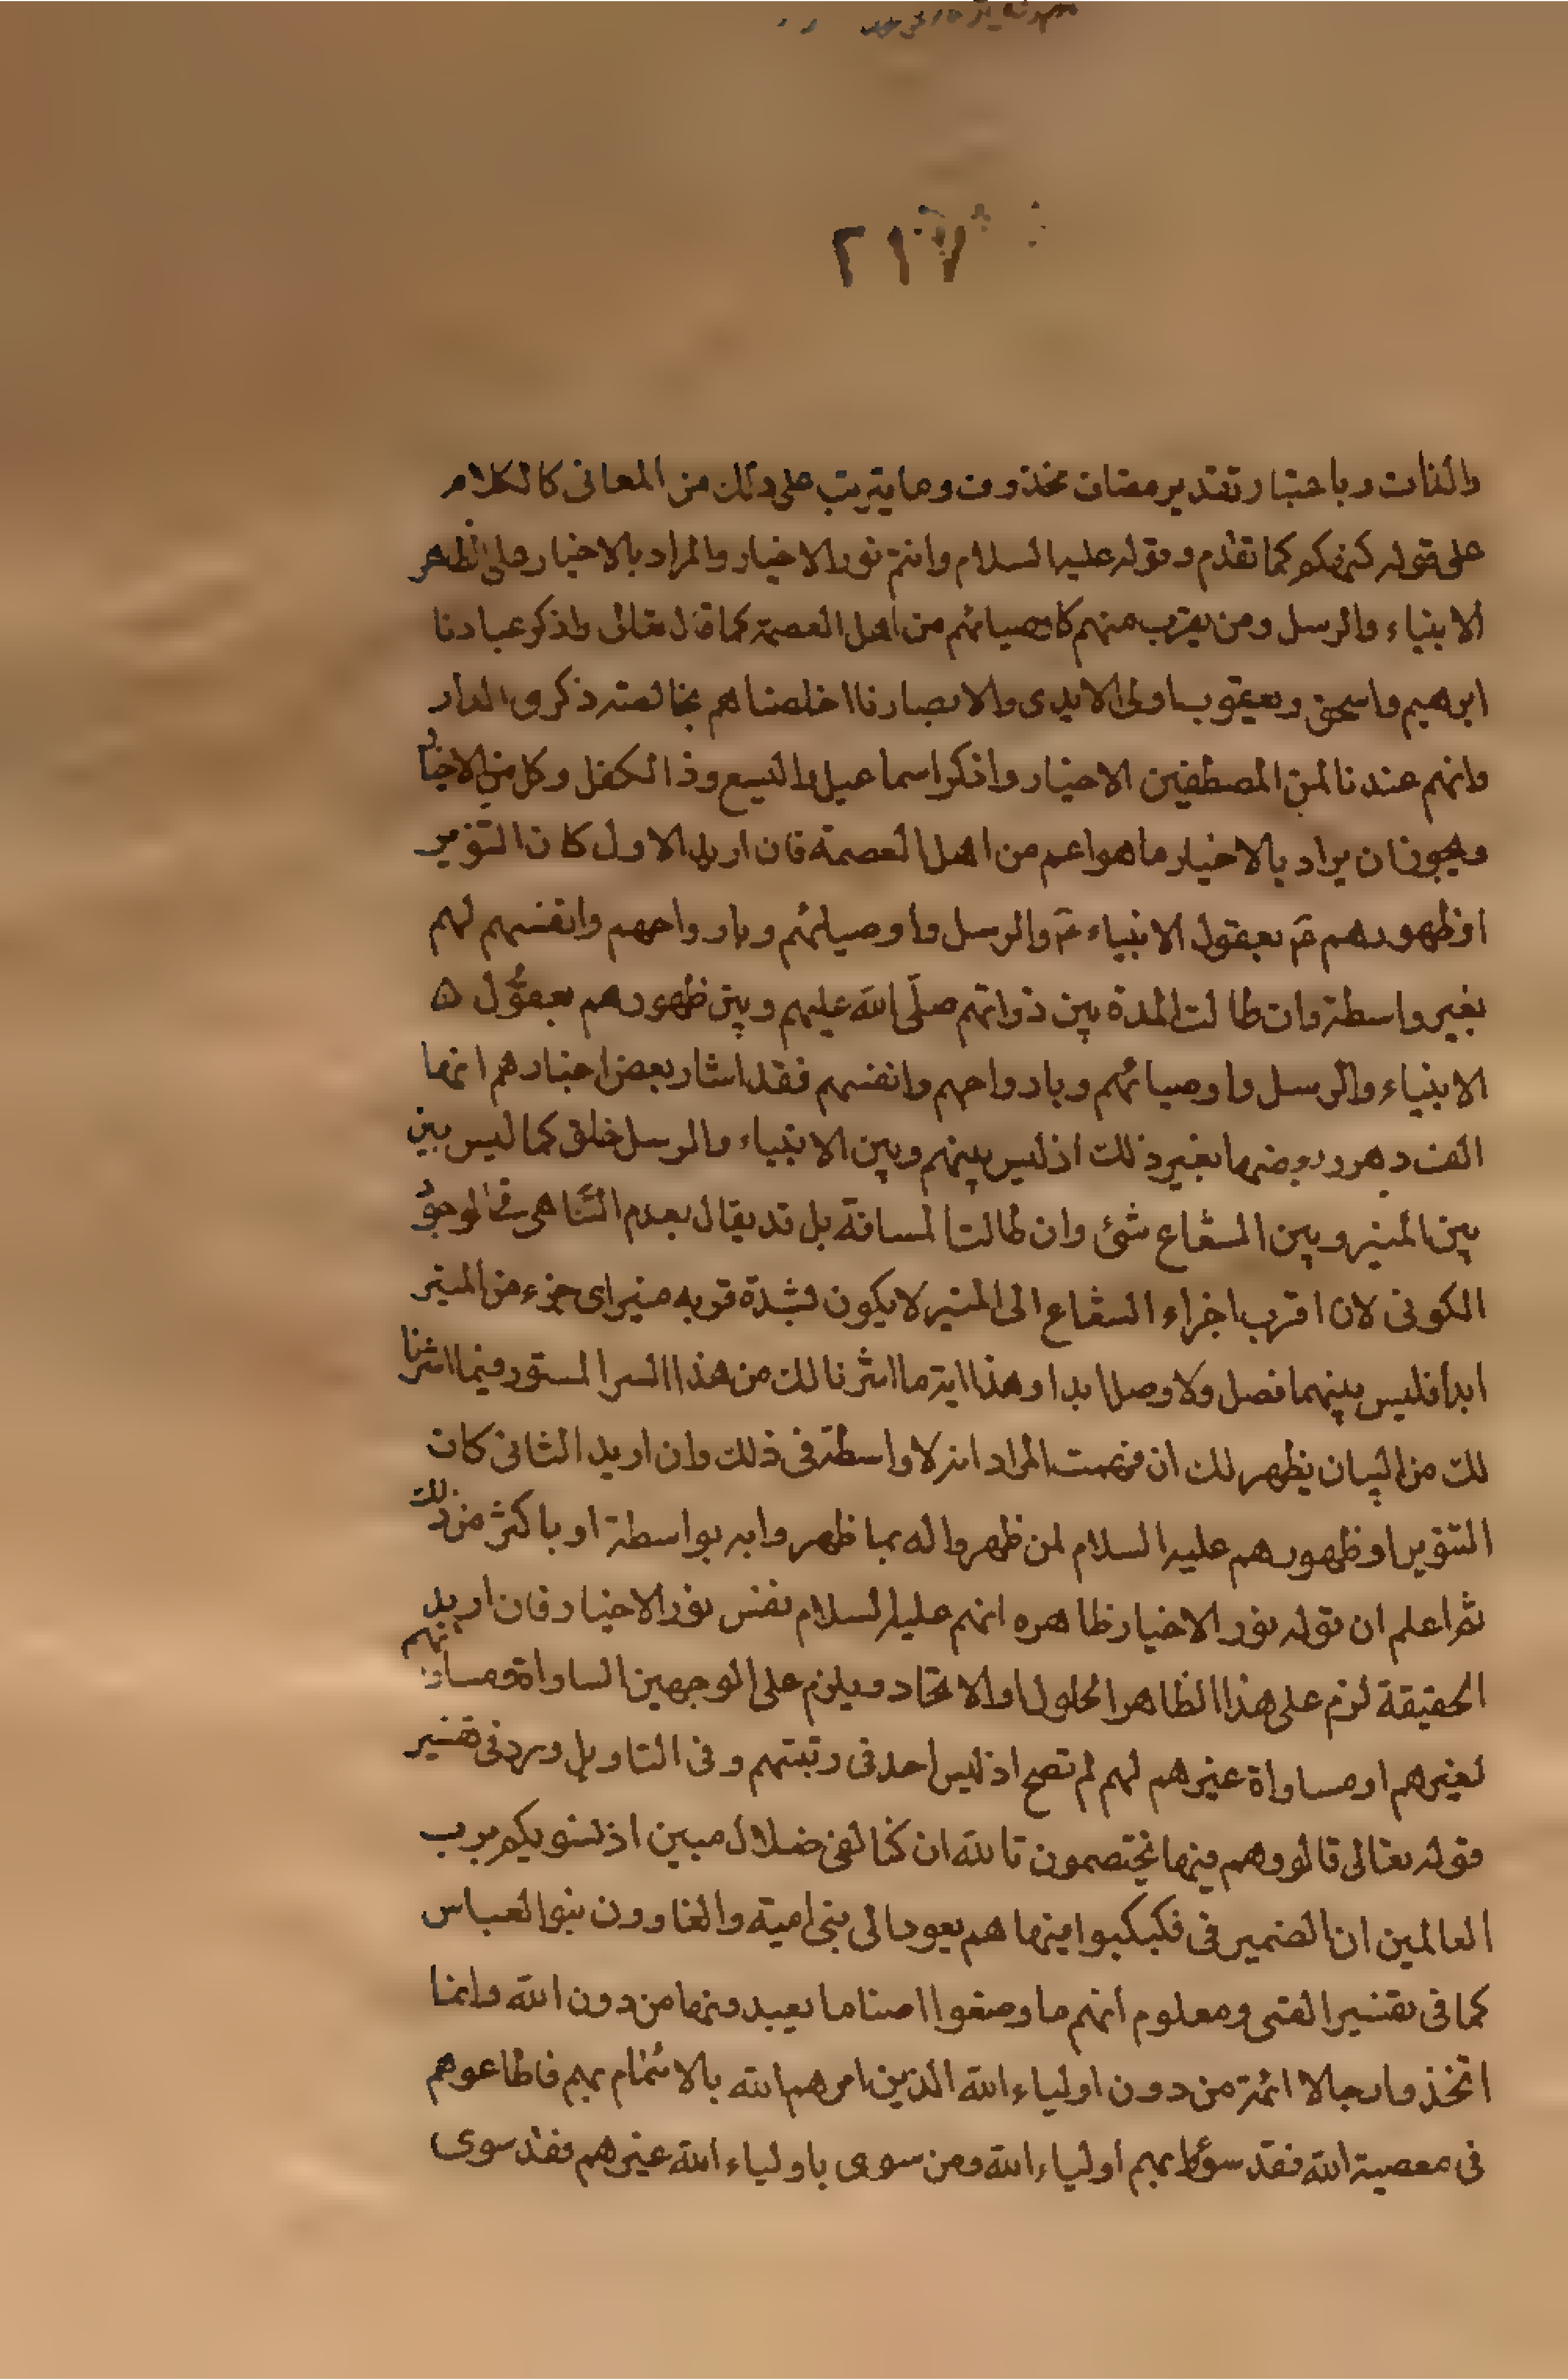 ٢١٧
والذات وباعتبار تقدير مضاف محذوف وما يترتب على ذلك من المعانى كالكلام
على قوله كنهكم كما تقدم وقوله عليه السلام وانتم نور الاخيار والمراد بالاخيار على الظاهر
الانبياء والرسل ومن يقرب منهم كاوصيائهم من اهل العصمة كما قال تعالى واذكر عبادنا
ابرهيم واسحق ويعقوب اولى الايدى والابصار انا اخلصناهم بخالصة ذكرى الدار
وانهم عندنا لمن المصطفين الاخيار واذكر اسماعيل واليسع وذا الكفل وكل من الاخيار
ويجوز ان يراد بالاخيار ما هو اعم من اهل العصمة فان اريد الاول كان التنوير
او ظهورهم ع بعقول الانبياء ع والرسل واوصيائهم وبارواحهم وانفسهم لهم
بغير واسطة وان طالت المدة بين ذواتهم صلى الله عليهم وبين ظهورهم بعقول ه
الانبياء والرسل واوصيائهم وبارواحهم وانفسهم فقد اشار بعض اخبارهم انها
الف دهر وبعضها بغير ذلك اذ ليس بينهم وبين الانبياء والرسل خلق كما ليس بين
بين المنير وبين الشعاع شئ وان طالت المسافة بل قد يقال بعدم التناهى فى الوجود
الكونى لان اقرب اجزاء الشعاع الى المنير لا يكون لشدة قربه منيرا اى جزء من المنير
ابدا فليس بينهما فصل ولا وصل ابدا وهذا اية ما اشرنا لك من هذا السر المستور فيما اشرنا
لك من البيان يظهر لك ان فهمت المراد انه لا واسطة فى ذلك وان اريد الثانى كان
التنوير او ظهورهم عليه السلام لمن ظهروا له بما ظهروا به بواسطة او باكثر من ذلك
ثم اعلم ان قوله نور الاخيار ظاهره انهم عليه السلام نفس نور الاخيار فان اريد
الحقيقة لزم على هذا الظاهر الحلول او الاتحاد ويلزم على الوجهين المساواة ومساواتهم
لغيرهم او مساواة غيرهم لهم لم تصح اذ ليس احد فى رتبتهم وفى التاويل ورد فى تفسير
قوله تعالى قالوا وهم فيها يختصمون تا لله ان كنا لفى ضلال مبين اذ نسويكم برب
العالمين ان الضمير فى فكبكبوا فيها هم يعود الى بنى امية والغاوون بنو العباس
كما فى تفسير القمى ومعلوم انهم ما وضعوا اصناما تعبد ونها من دون الله وانما
اتخذوا رجالا ائمة من دون اولياء الله الذين امرهم الله بالائتمام بهم فاطاعوهم
فى معصية الله فقد سووا بهم اولياء الله ومن سوى باولياء الله غيرهم فقد سوى